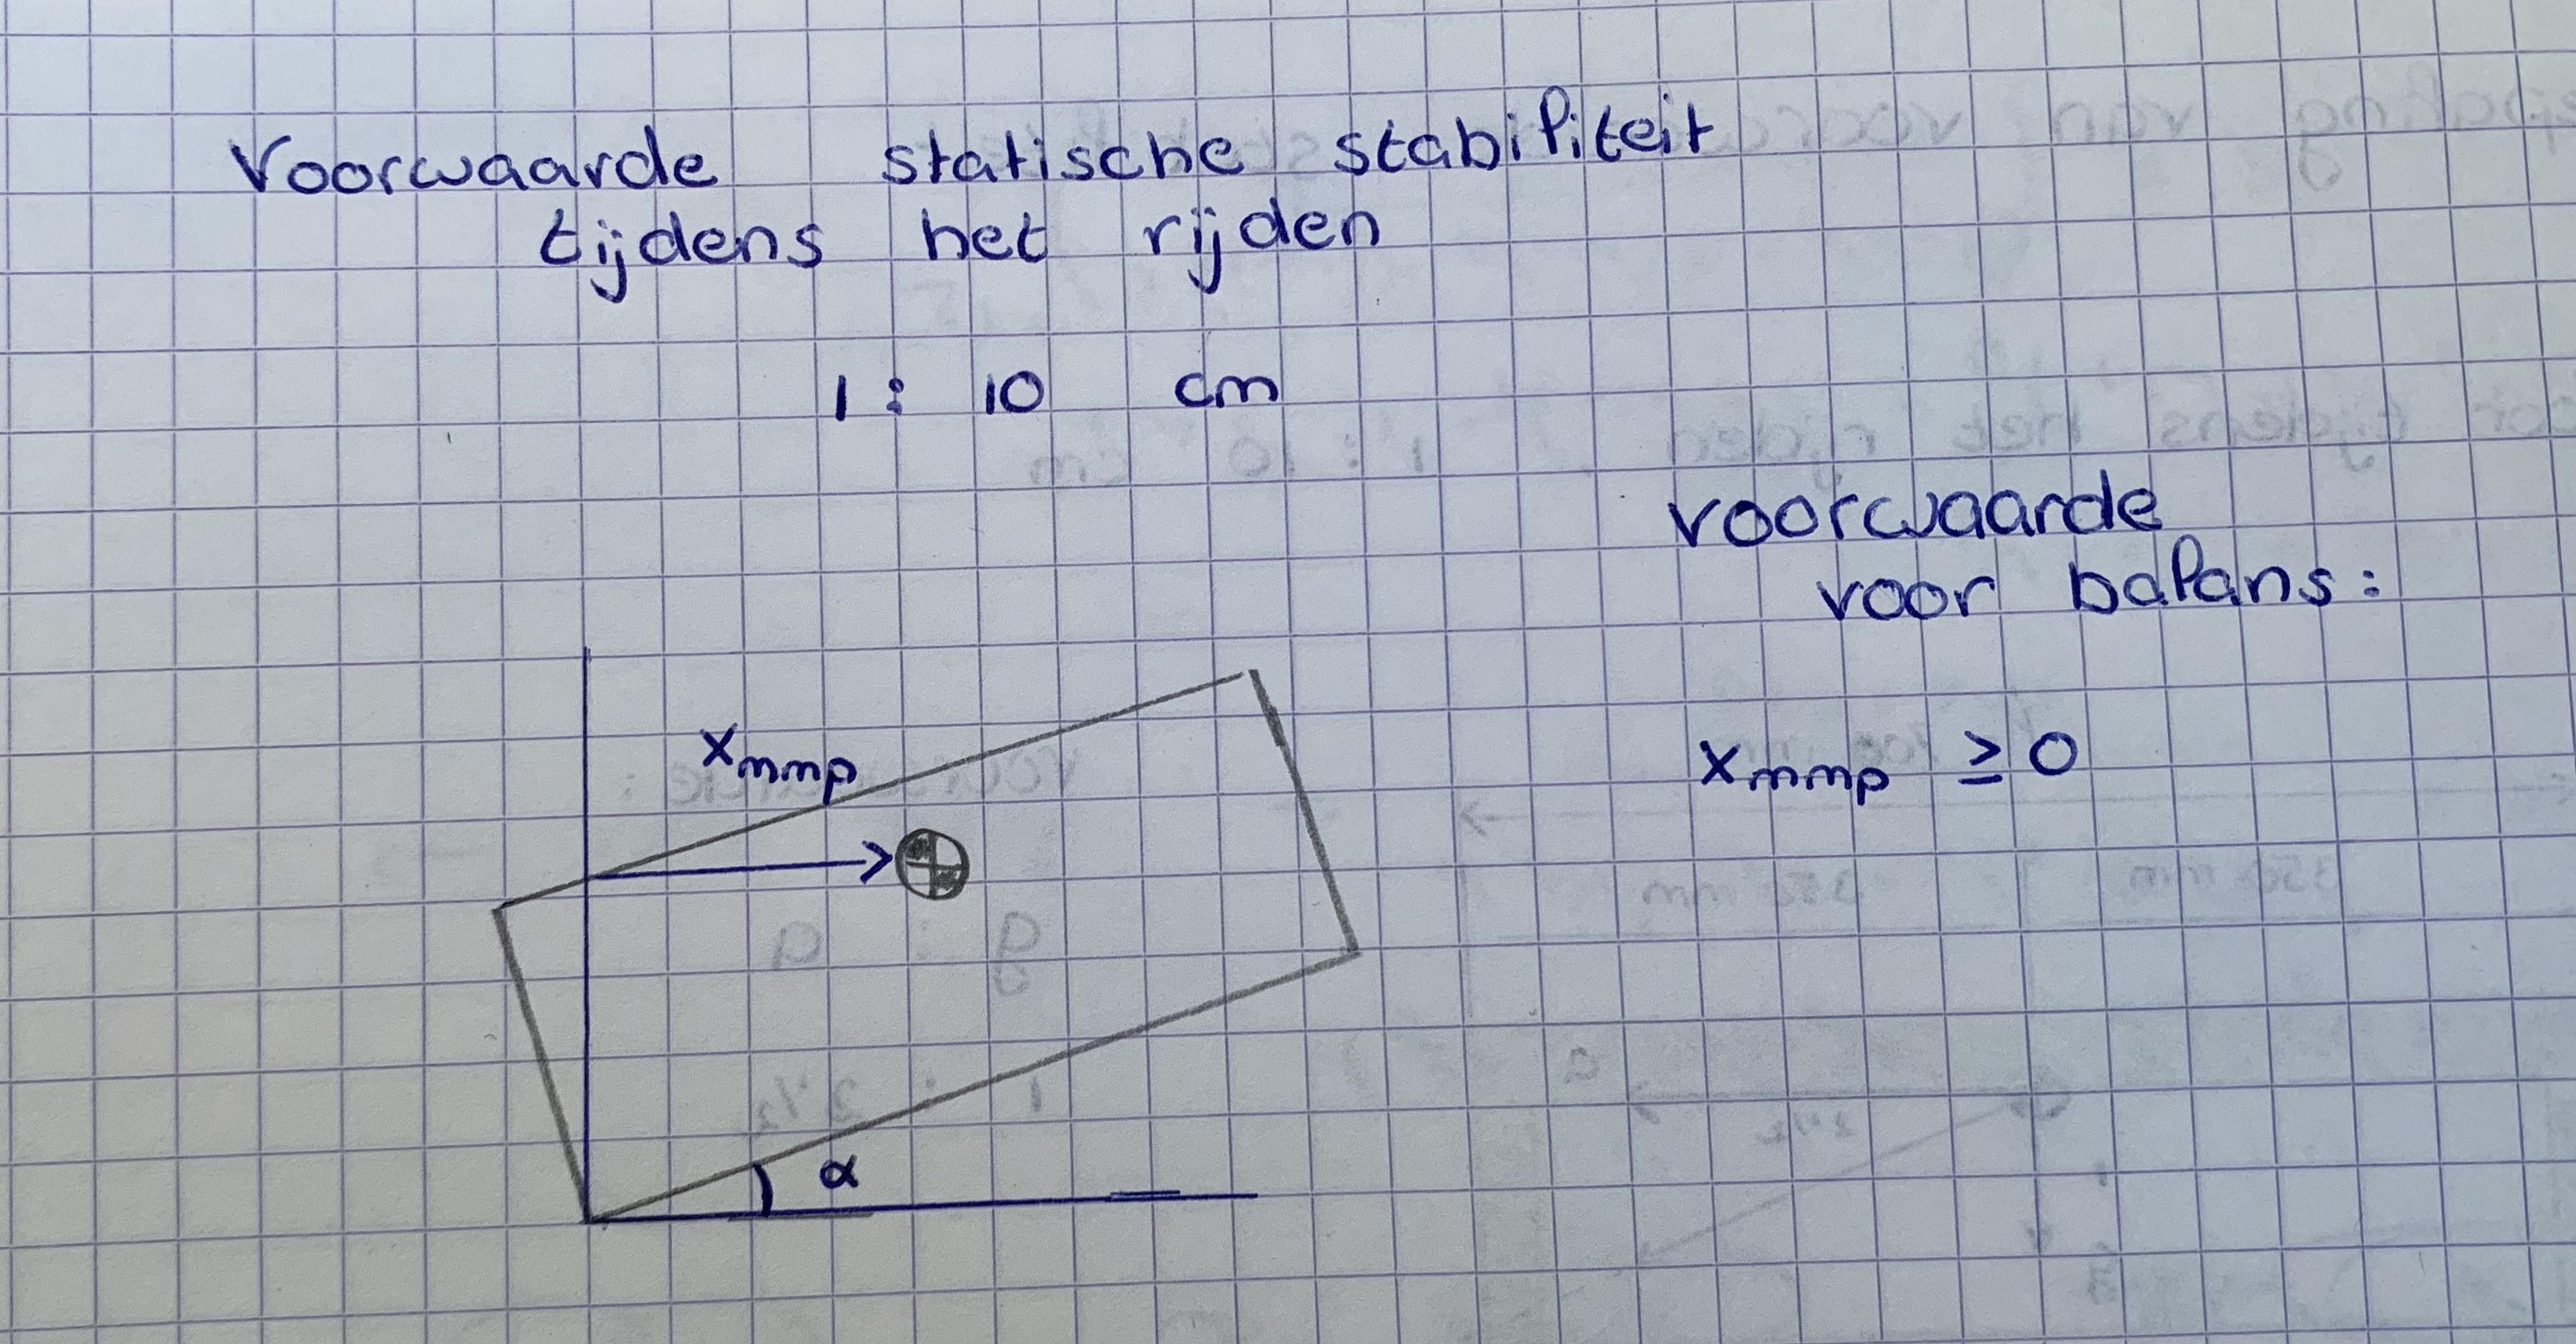 Voorwaarde statische stabiliteit
tijdens het rijden
1 : 10 cm
voorwaarde
voor balans:
xmmp
xmmp ≥ 0
α